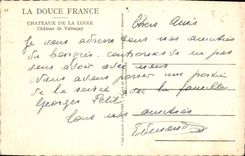 LA DOUCE FRANCE
CHATEAUX DE LA LOIRE
Château de Valençay
Chers Amis
Je vous adresse tous nos amitiés
du congrès.
vous avoir avec nous
nous avons passer une partie
de la soirée avec la famille
Georges Petit
tous nos amitiés
Edmond